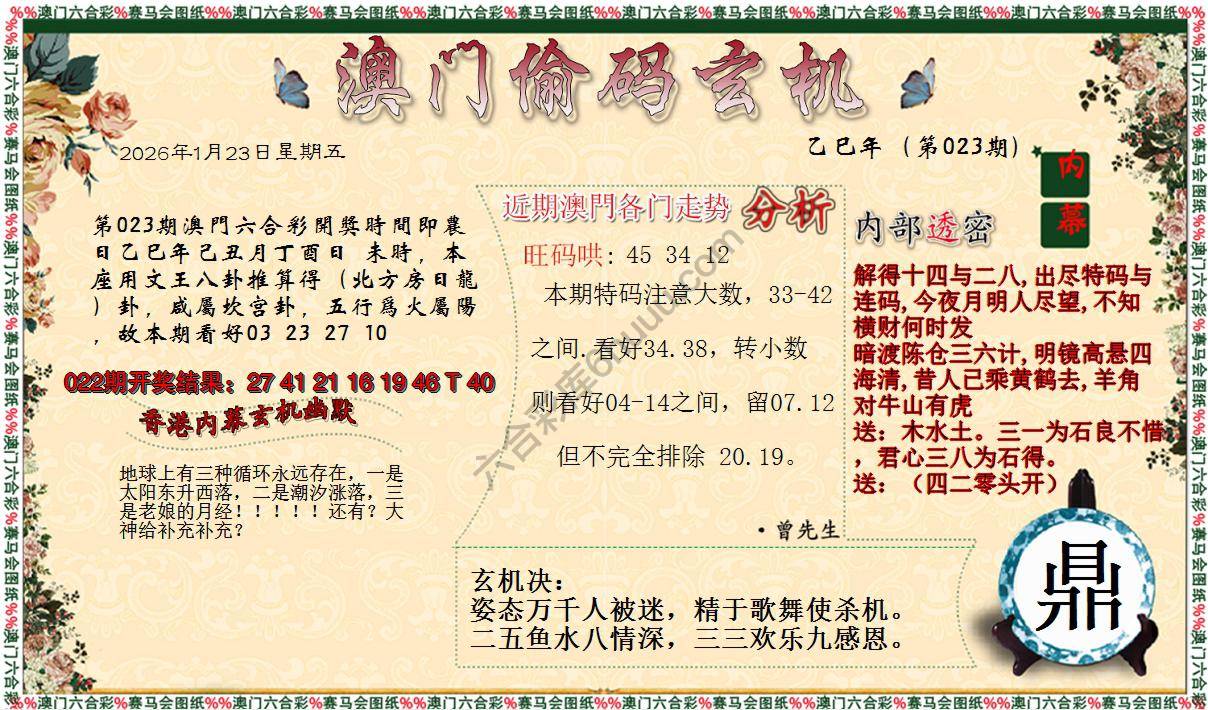 %%澳门六合彩%赛马会图纸%%澳门六合彩%赛马会图纸%%澳门六合彩%赛马会图纸%%澳门六合彩%赛马会图纸%%澳门六合彩%赛马会图纸%%澳门六合彩%赛马会图纸%%
澳门偷码玄机
2026年1月23日星期五
乙巳年（第023期）
内
幕
第023期澳門六合彩開獎時間即農
日乙巳年己丑月丁酉日 未時，本
座用文王八卦推算得（北方房日龍
）卦，咸屬坎宫卦，五行爲火屬陽
，故本期看好03 23 27 10
022期开奖结果：27 41 21 16 19 46 T 40
香港内幕玄机幽默
地球上有三种循环永远存在，一是
太阳东升西落，二是潮汐涨落，三
是老娘的月经！！！！！还有？大
神给补充补充？
近期澳門各门走势 分析
旺码哄: 45 34 12
本期特码注意大数，33-42
之间.看好34.38，转小数
则看好04-14之间，留07.12
但不完全排除 20.19。
·曾先生
内部透密
解得十四与二八,出尽特码与
连码,今夜月明人尽望,不知
横财何时发
暗渡陈仓三六计,明镜高悬四
海清,昔人已乘黄鹤去,羊角
对牛山有虎
送：木水土。三一为石良不惜
，君心三八为石得。
送：（四二零头开）
玄机决：
姿态万千人被迷，精于歌舞使杀机。
二五鱼水八情深，三三欢乐九感恩。
鼎
%%澳门六合彩%赛马会图纸%%澳门六合彩%赛马会图纸%%澳门六合彩%赛马会图纸%%澳门六合彩%赛马会图纸%%澳门六合彩%赛马会图纸%%澳门六合彩%赛马会图纸%%